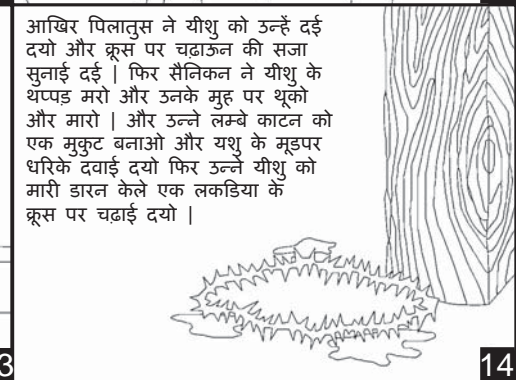 आखिर पिलातुस ने यीशु को उन्हें दई
दयो और क्रूस पर चढ़ाऊन की सजा
सुनाई दई | फिर सैनिकन ने यीशु के
थप्पड़ मरो और उनके मुह पर थूको
और मारो | और उन्ने लम्बे काटन को
एक मुकुट बनाओ और यशु के मूडपर
धरिके दवाई दयो फिर उन्ने यीशु को
मारी डारन केले एक लकडिया के
क्रूस पर चढ़ाई दयो |
3
14